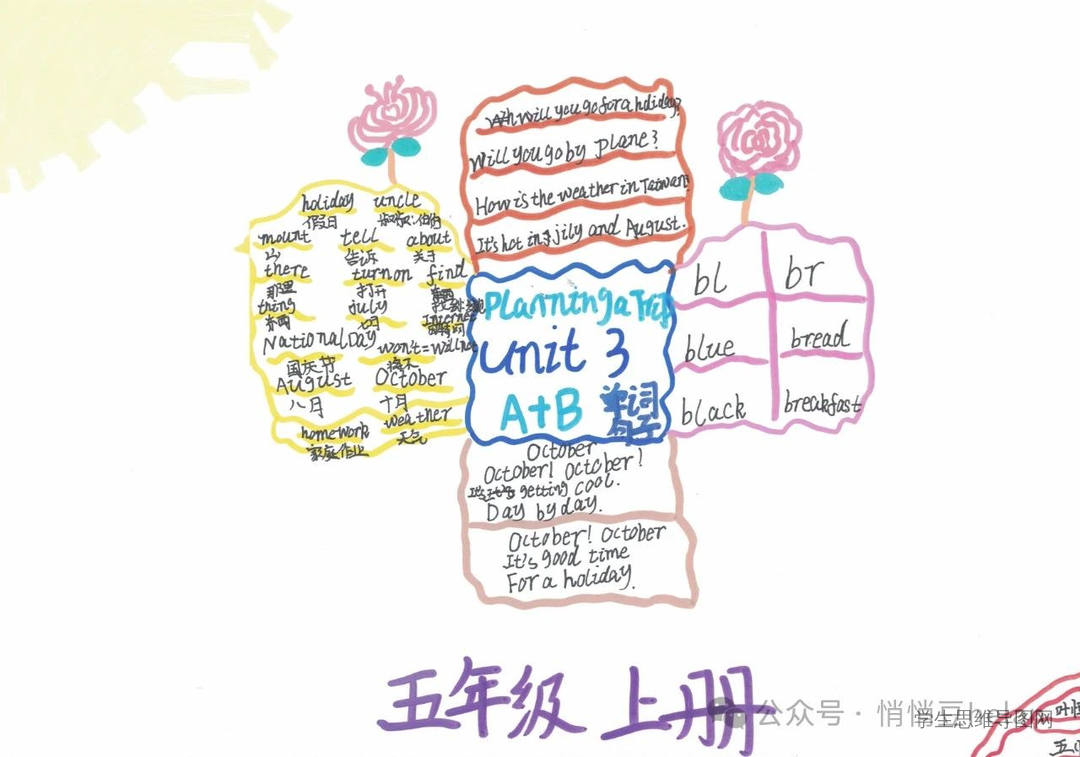 Wh will you go for a holiday?
Will you go by plane?
How is the weather in Taiwan?
It's hot in jily and August.
holiday uncle
假日
mount tell about
山 告诉 关于
there turn on find
那里 打开
thing july
东西 七月 Internet
National Day won't=will not
国庆节 将不
August October
八月 十月
homework weather
家庭作业 天气
Planning a Trip
unit 3
A+B 单词
句子
bl br
blue bread
black breakfast
October
October! October!
It's getting cool.
Day by day.
October! October
It's good time
For a holiday.
五年级 上册
公众号 · 悄悄豆
学生思维导图网